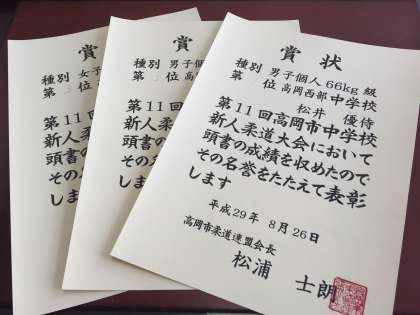 賞
種別 女子
第 位
第11回
新人柔
頭書の
その名
しま
賞
種別 男子個
第 位 高
第11回
新人柔
頭書の
その名
しま
賞状
種別 男子個人66kg級
第 位 高岡西部中学校
松井 優侍
第11回高岡市中学校
新人柔道大会において
頭書の成績を収めたので
その名誉をたたえて表彰
します
平成29年 8月26日
高岡市柔道連盟会長
松浦 士朗